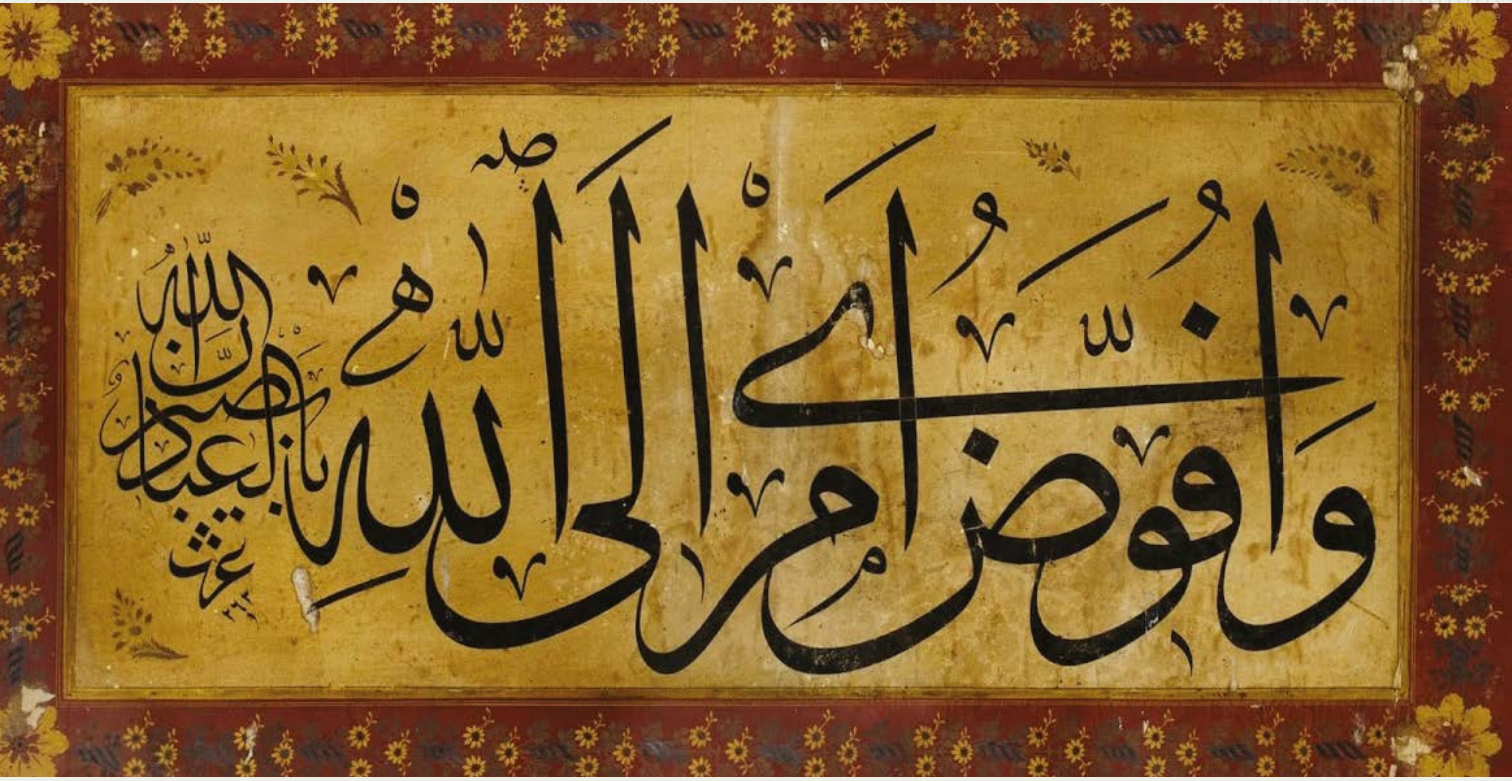 وَاُفَوِّضُ اَمْرِي اِلَى اللّٰهِ
اِنَّ اللّٰهَ بَصِيرٌ بِالْعِبَادِ
عزت